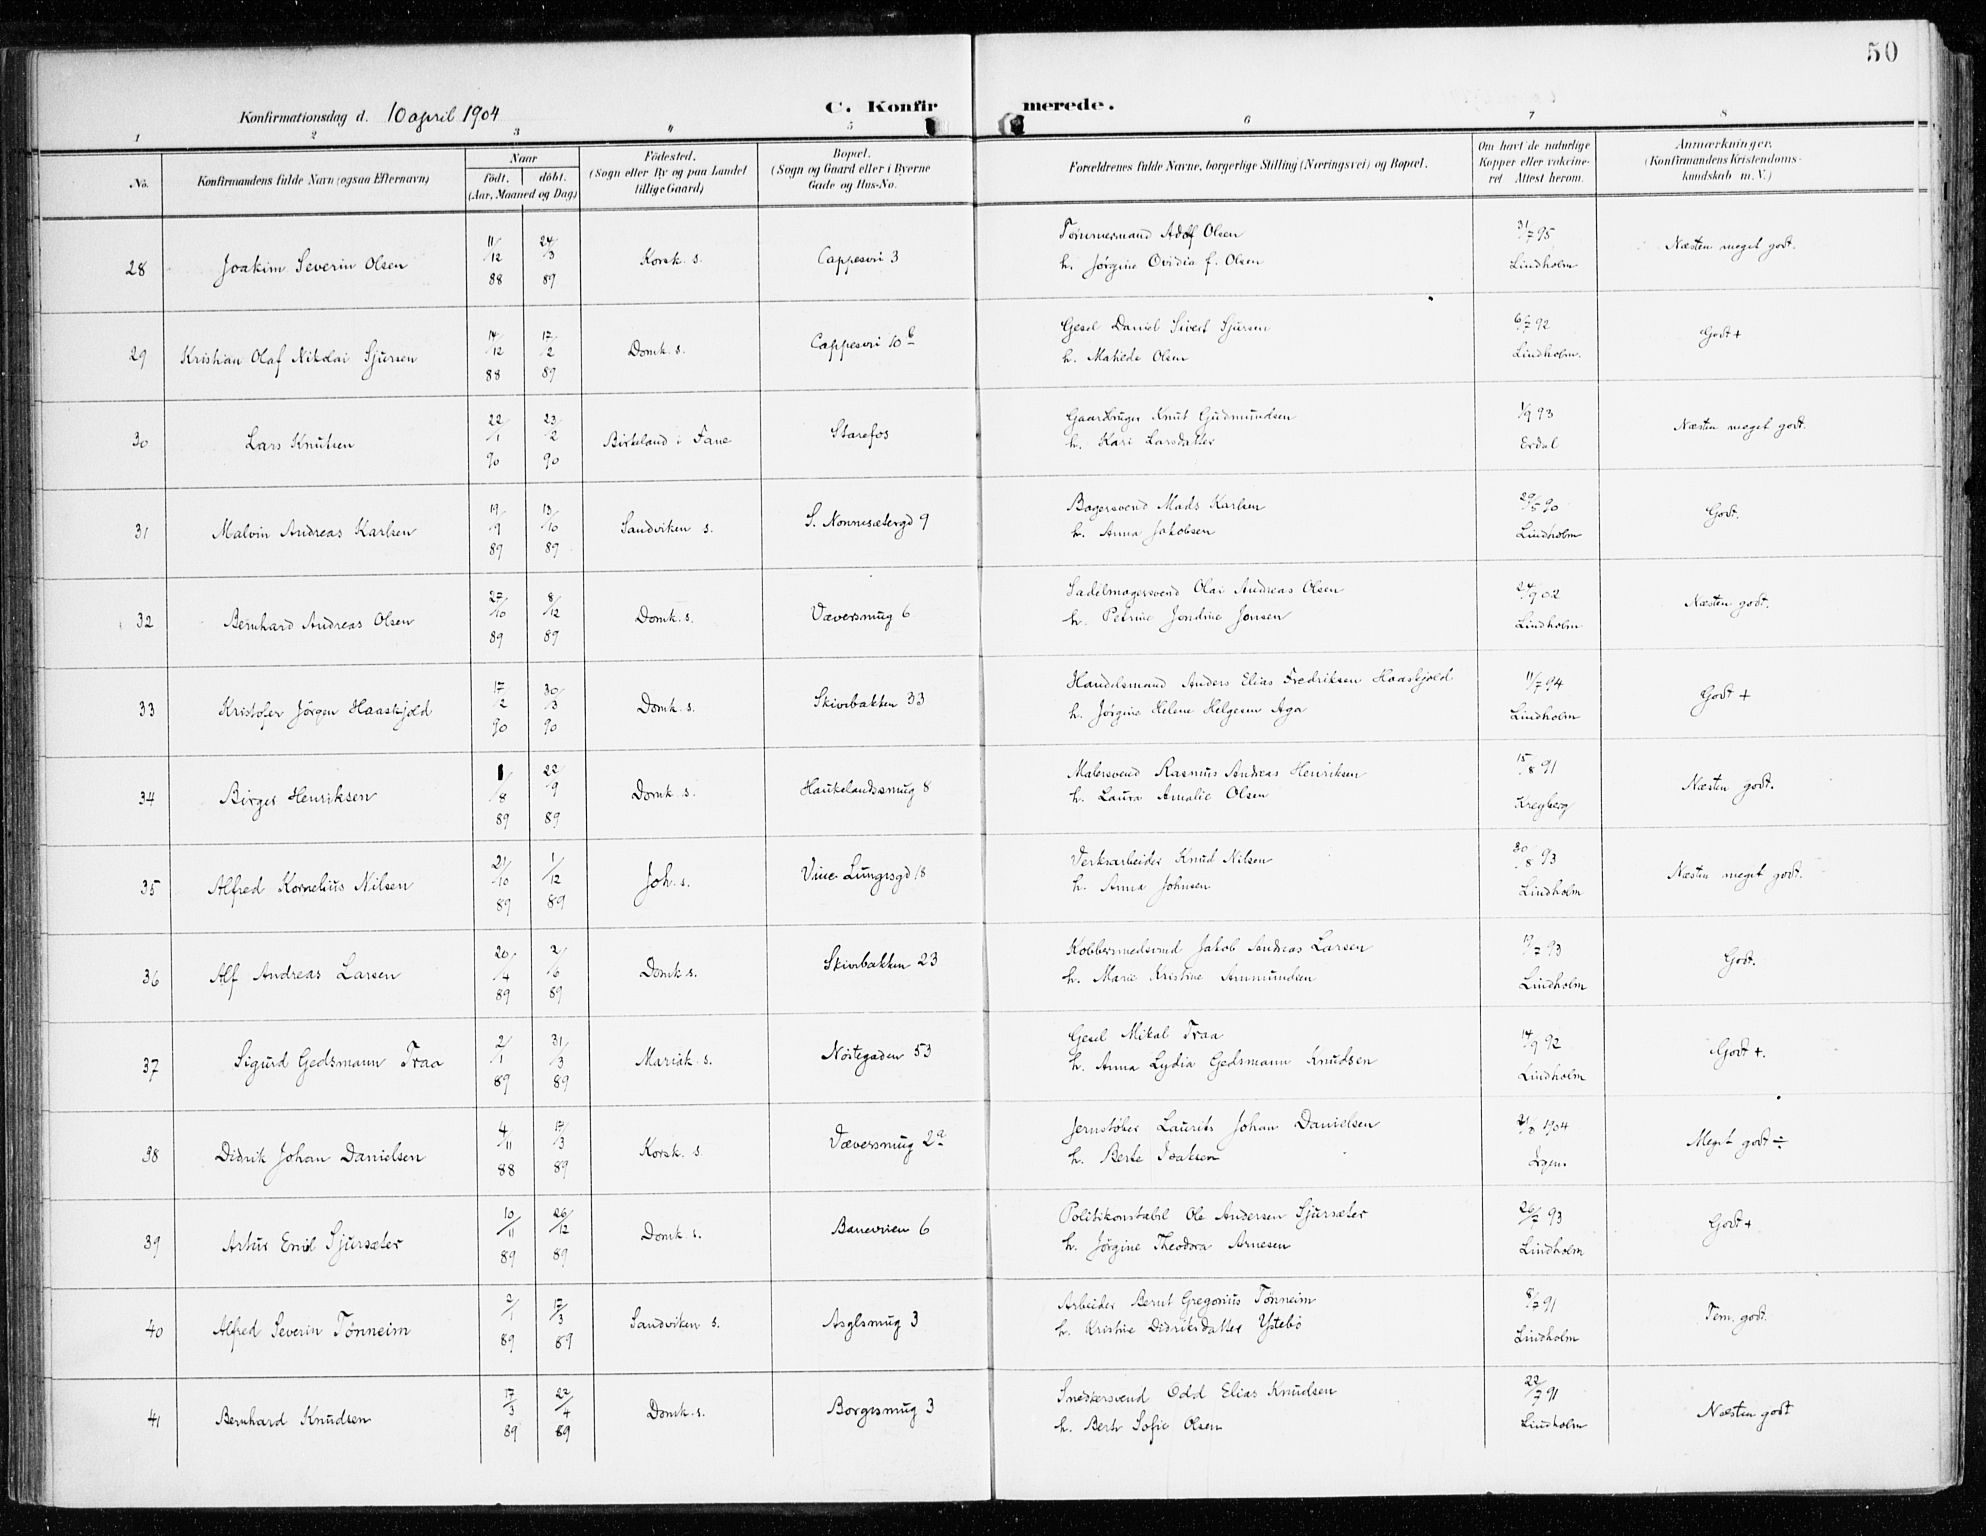 50
Konfirmationsdag d. 10 april 1904
C. Konfirmerede.
1 2 3 " 5 6 7 8
No.
Konfirmandens fulde Navn (ogsaa Efternavn)
Naar
födt. döbt.
(Aar, Maaned og Dag)
Födested.
(Sogn eller By og paa Landet
tillige Gaard)
Bopæl.
(Sogn og Gaard eller i Byerne
Gade og Hus-No.
Forældrenes fulde Navne, borgerlige Stilling (Næringsvei) og Bopæl.
Om havt de naturlige
Kopper eller vakcine-
ret Attest herom.
Anmærkninger.
(Konfirmandens Kristendoms-
kundskab m. V.)
28 Joakim Severin Olsen 11/12 88 24/3 89 Korsk. s. Cappesvei 3
Tømmermand Adolf Olsen
h. Jørgine Ovidia f. Olsen
31/7 95
Lindholm
Næsten meget godt.
29 Kristian Olaf Nikolai Sjursen 14/12 88 17/2 89 Domk. s. Cappesvei 10 b
Gesel Daniel Sivert Sjursen
h. Matilde Olsen
6/7 92
Lindholm.
Godt +
30 Lars Knutsen 22/1 90 23/2 90 Birkeland i Fane Starefos
Gaardbruger Knut Gudmundsen
h. Kari Larsdatter
1/9 93
Erdal
Næsten meget godt.
31 Malvin Andreas Karlsen 19/9 89 13/10 89 Sandviken s. S. Nonnesætergd 9
Bagersvend Mads Karlsen
h. Anna Jakobsen
29/5 90
Lindholm
Godt.
32 Bernhard Andreas Olsen 27/10 89 8/12 89 Domk. s. Væversmug 6
Sadelmagersvend Olai Andreas Olsen
h. Petrine Jondine Jonsen
24/9 02
Lindholm
Næsten godt.
33 Kristofer Jörgen Haaskjold 17/2 90 30/3 90 Domk. s. Skivebakken 33
Handelsmand Anders Elias Fredriksen Haaskjold
h. Jørgine Helene Helgesen Aga
11/7 94
Lindholm
Godt +
34 Birger Henriksen 1/8 89 22/9 89 Domk. s. Haukelandssmug 8
Malersvend Rasmus Andreas Henriksen
h. Laura Amalie Olsen
15/8 91
Kreyberg
Næsten godt.
35 Alfred Kornelius Nilsen 21/10 89 1/12 89 Joh. s. Vine Lungesgd 18
Verksarbeider Knud Nilsen
h. Anna Johnsen
30/8 93
Lindholm
Næsten meget godt.
36 Alf Andreas Larsen 20/4 89 2/6 89 Domk s. Skivebakken 23
Kobbersmedsvend Jakob Andreas Larsen
h. Marie Kristine Ammundsen
19/7 93
Lindholm
Godt.
37 Sigurd Gedsmann Traa 2/1 89 31/3 89 Mariæk. s. Nöstegaden 53
Gesel Mikal Traa
h. Anna Lydia Gedsmann Knudsen
14/9 92
Lindholm
Godt +.
38 Didrik Johan Danielsen 4/11 88 17/3 89 Korsk. s. Væversmug 2 a
Jernstöber Laurits Johan Danielsen
h. Berte Isaksen
21/8 1904
Meget godt ÷
39 Artur Emil Sjursæter 10/11 89 26/12 89 Domk. s. Baneveien 6
Politikonstabel Ole Andersen Sjursæter
h. Jörgine Theodora Arnesen
26/7 93
Lindholm
Godt +
40 Alfred Severin Tönneim 2/1 89 17/3 89 Sandviken s. Aspelsmug 3
Arbeider Bernt Gregorius Tönneim
h. Kristine Didriksdatter Ystebö
8/7 91
Lindholm
Tem. godt.
41 Bernhard Knudsen 17/3 89 22/4 89 Domk. s. Borgesmug 3
Snedkersvend Odd Elias Knudsen
h. Berte Sofie Olsen
22/7 91
Lindholm
Næsten godt